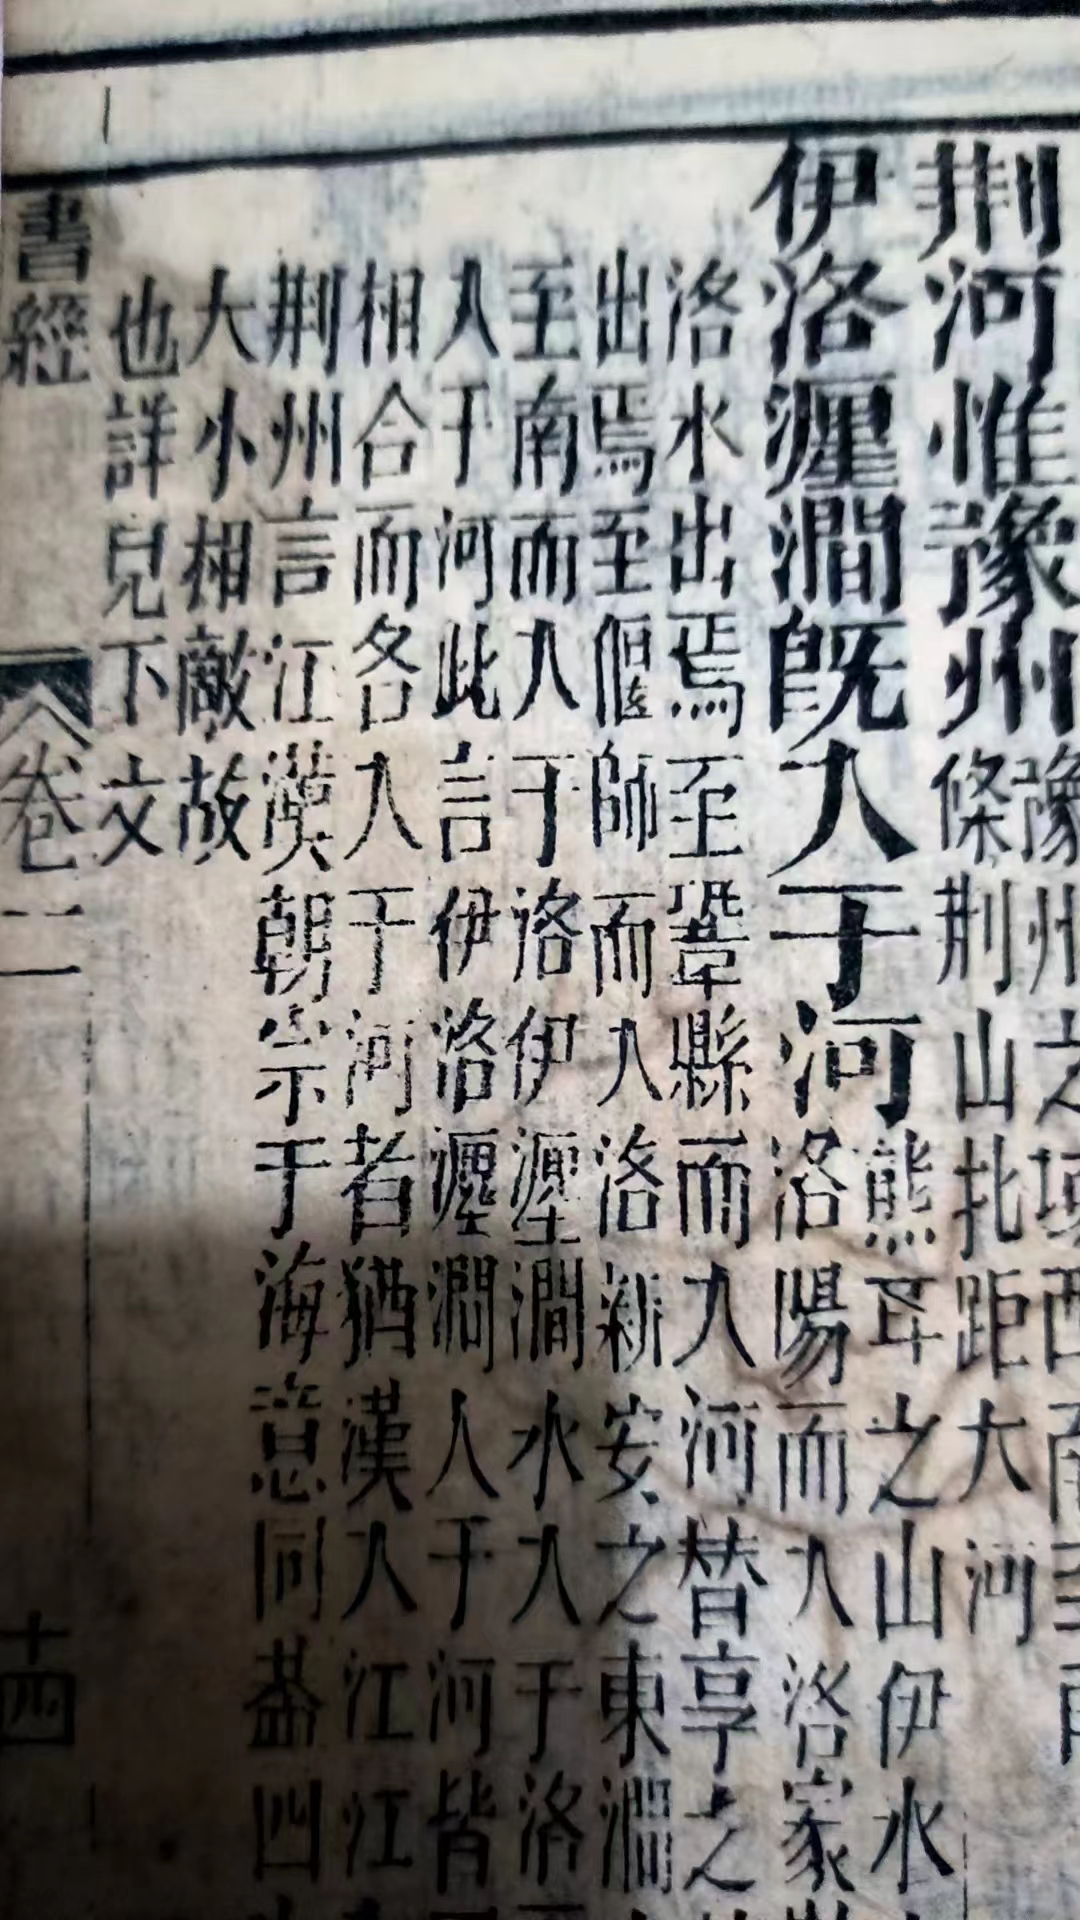 荆河惟豫州
豫州之域西南至南
條荆山北距大河
伊洛瀍澗既入于河
熊耳之山伊水
洛陽而入洛家
洛水出焉至鞏縣而入河替亨之
出焉至偃師而入洛新安之東澗
至南而入于洛伊瀍澗水入于洛
入于河此言伊洛瀍澗入于河皆
相合而各入于河者猶漢入江江
荆州言江漢朝宗于海意同葢四
大小相敵故
也詳見下文
書經 卷二 十四